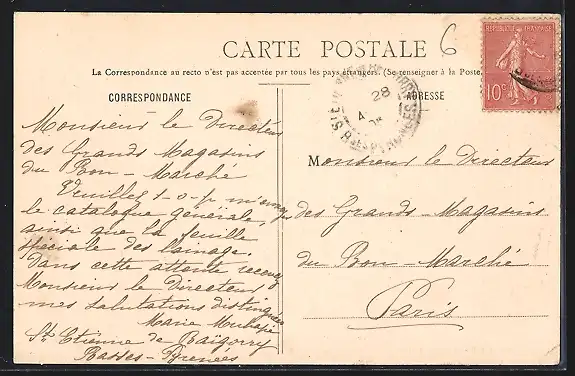 CARTE POSTALE
6
REPUBLIQUE FRANÇAISE
10c
La Correspondance au recto n'est pas acceptée par tous les pays étrangers. (Se renseigner à la Poste.
CORRESPONDANCE
ADRESSE
28
4
Monsieur le Directeur
des Grands Magasins
du Bon-Marché
Veuillez s-v-p m'envoyer
le catalogue générale,
ainsi que la feuille
spéciale des lainage.
Dans cette attente recevez
Monsieur le Directeur
mes salutations distinguées
Marie
St Etienne de Baïgorry
Basses-Pyrenées
Monsieur le Directeur
des Grands-Magasins
du Bon-Marché
Paris